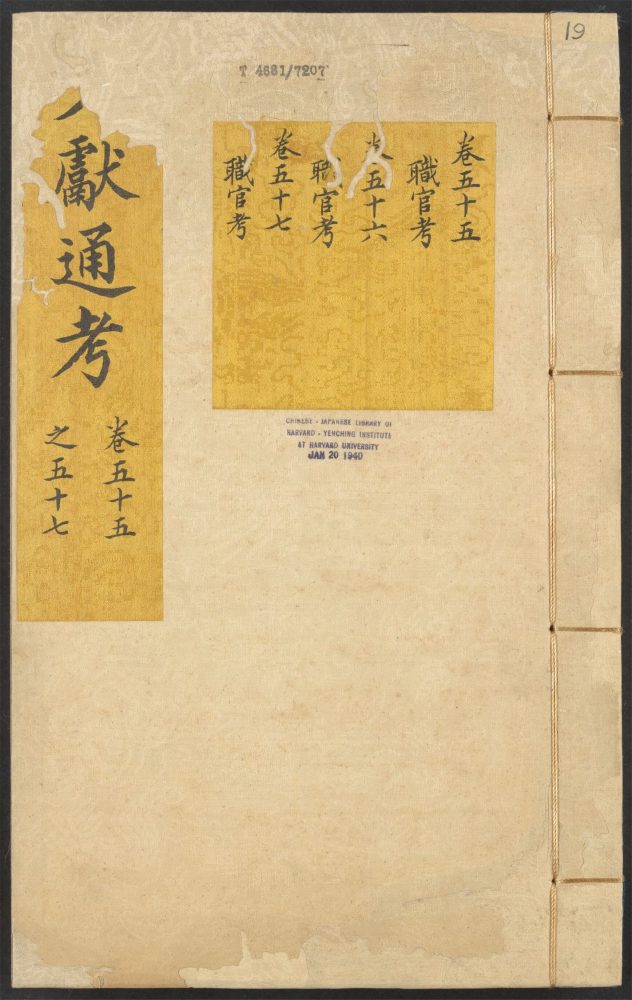 19
T 4681/7207
卷五十五
職官考
五十六
職官考
卷五十七
職官考
獻通考
卷五十五
之五十七
CHINESE - JAPANESE LIBRARY OF
HARVARD - YENCHING INSTITUTE
AT HARVARD UNIVERSITY
JAN 20 1940